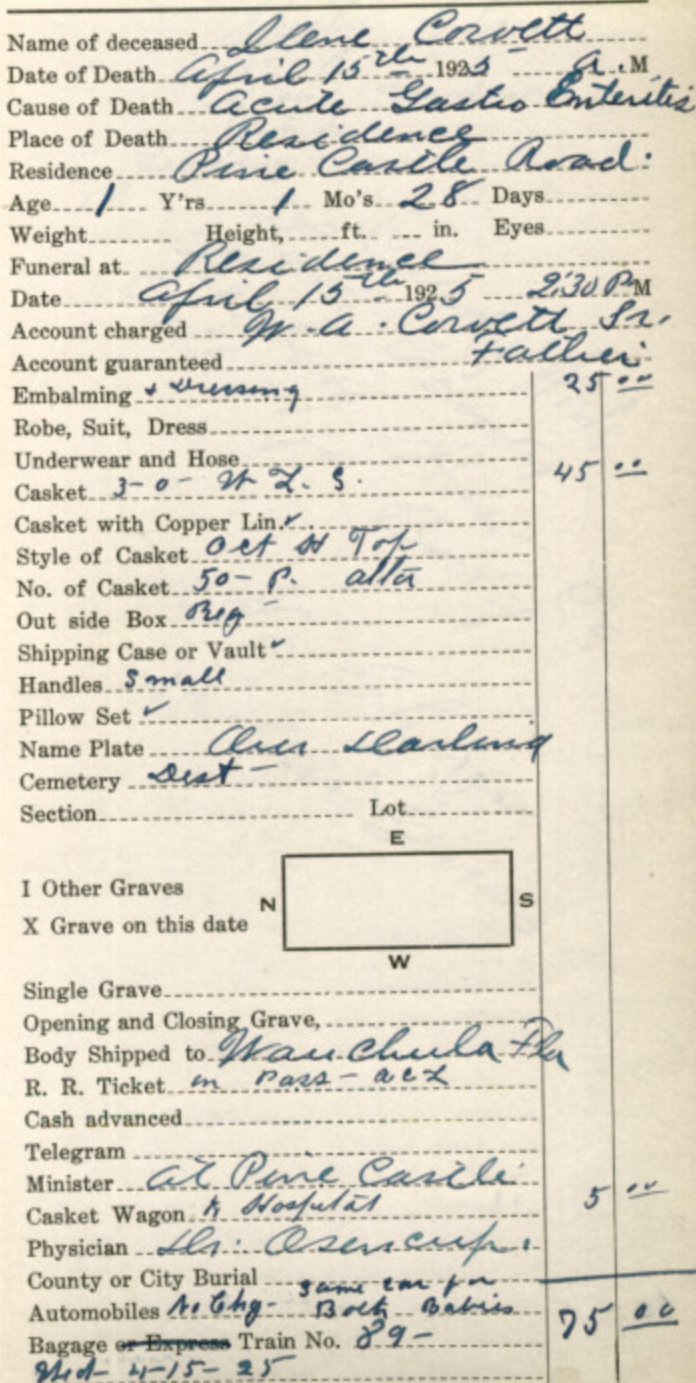 Name of deceased Ilene Corvett
Date of Death April 15th 1925 A.M
Cause of Death Acute Gastro Enteritis
Place of Death Residence
Residence Pine Castle Road.
Age 1 Y'rs 1 Mo's 28 Days
Weight Height, ft. in. Eyes
Funeral at Residence
Date April 15th 1925 2:30 P M
Account charged W. A. Corvett Sr.
Account guaranteed Father
Embalming & Dressing 25 00
Robe, Suit, Dress
Underwear and Hose
Casket 3-0- W. L. S. 45 00
Casket with Copper Lin. ✓
Style of Casket Oct H Top
No. of Casket 50- P.
Out side Box Reg
Shipping Case or Vault ✓
Handles Small
Pillow Set ✓
Name Plate Our Darling
Cemetery Dest -
Section Lot
E
I Other Graves
N S
X Grave on this date
W
Single Grave
Opening and Closing Grave,
Body Shipped to Wauchula Fla
R. R. Ticket on Pass-
Cash advanced
Telegram
Minister at Pine Castle
Casket Wagon Hospital 5 00
Physician Dr.
County or City Burial
same car for
Automobiles No Chg- Both Babies 75 00
Bagage or Express Train No. 89-
Wed- 4-15-25